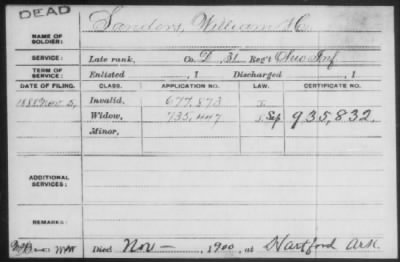 DEAD
NAME OF SOLDIER: Sanders, William H.
SERVICE: Late rank, Co. D, 31 Reg't Inf
TERM OF SERVICE: Enlisted , 1 Discharged , 1
DATE OF FILING. CLASS. APPLICATION NO. LAW. CERTIFICATE NO.
1888 Nov. 5, Invalid, 677,873
Widow, 735,447 935,832.
Minor,
ADDITIONAL SERVICES:
REMARKS:
Died Nov — , 1900, at Hartford Ark